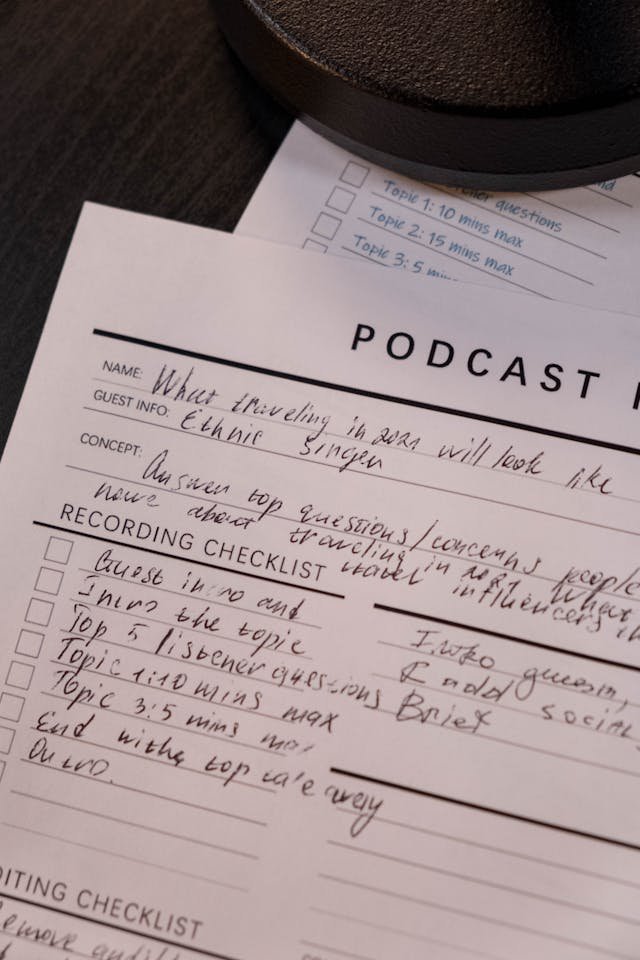 questions
Topic 1: 10 mins max
Topic 2: 15 mins max
Topic 3: 5
PODCAST
NAME: What traveling in 2021 will look like
GUEST INFO: Ethnie Singen
CONCEPT: Answer top questions/concerns
have about traveling in 2021. What
travel influencers
RECORDING CHECKLIST
Guest intro and
Intro the topic
Top 5 listener questions
Topic 1:10 mins max
Topic 3:5 mins
End with top
Outro.
Intro
& add social
Brief
EDITING CHECKLIST
Remove